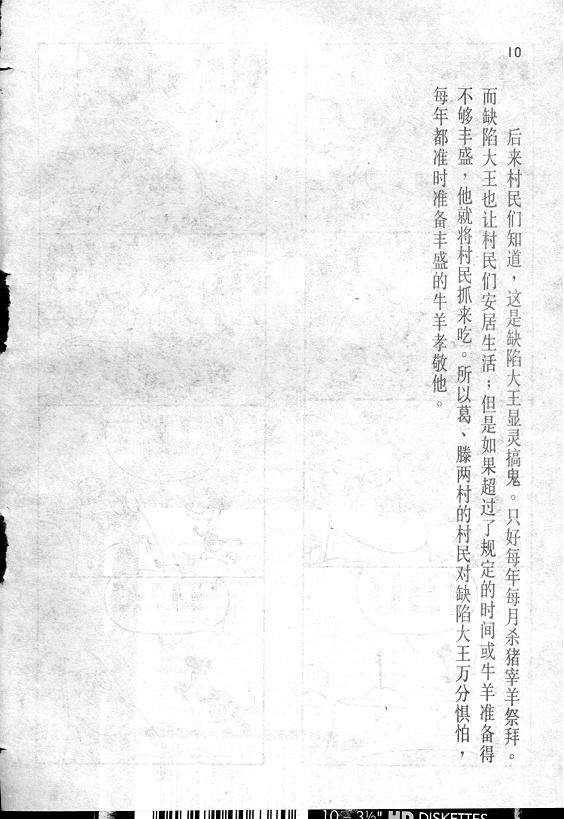 10
后来村民们知道，这是缺陷大王显灵搞鬼。只好每年每月杀猪宰羊祭拜。
而缺陷大王也让村民们安居生活；但是如果超过了规定的时间或牛羊准备得
不够丰盛，他就将村民抓来吃。所以葛、滕两村的村民对缺陷大王万分惧怕，
每年都准时准备丰盛的牛羊孝敬他。
10 - 3½" HD DISKETTES